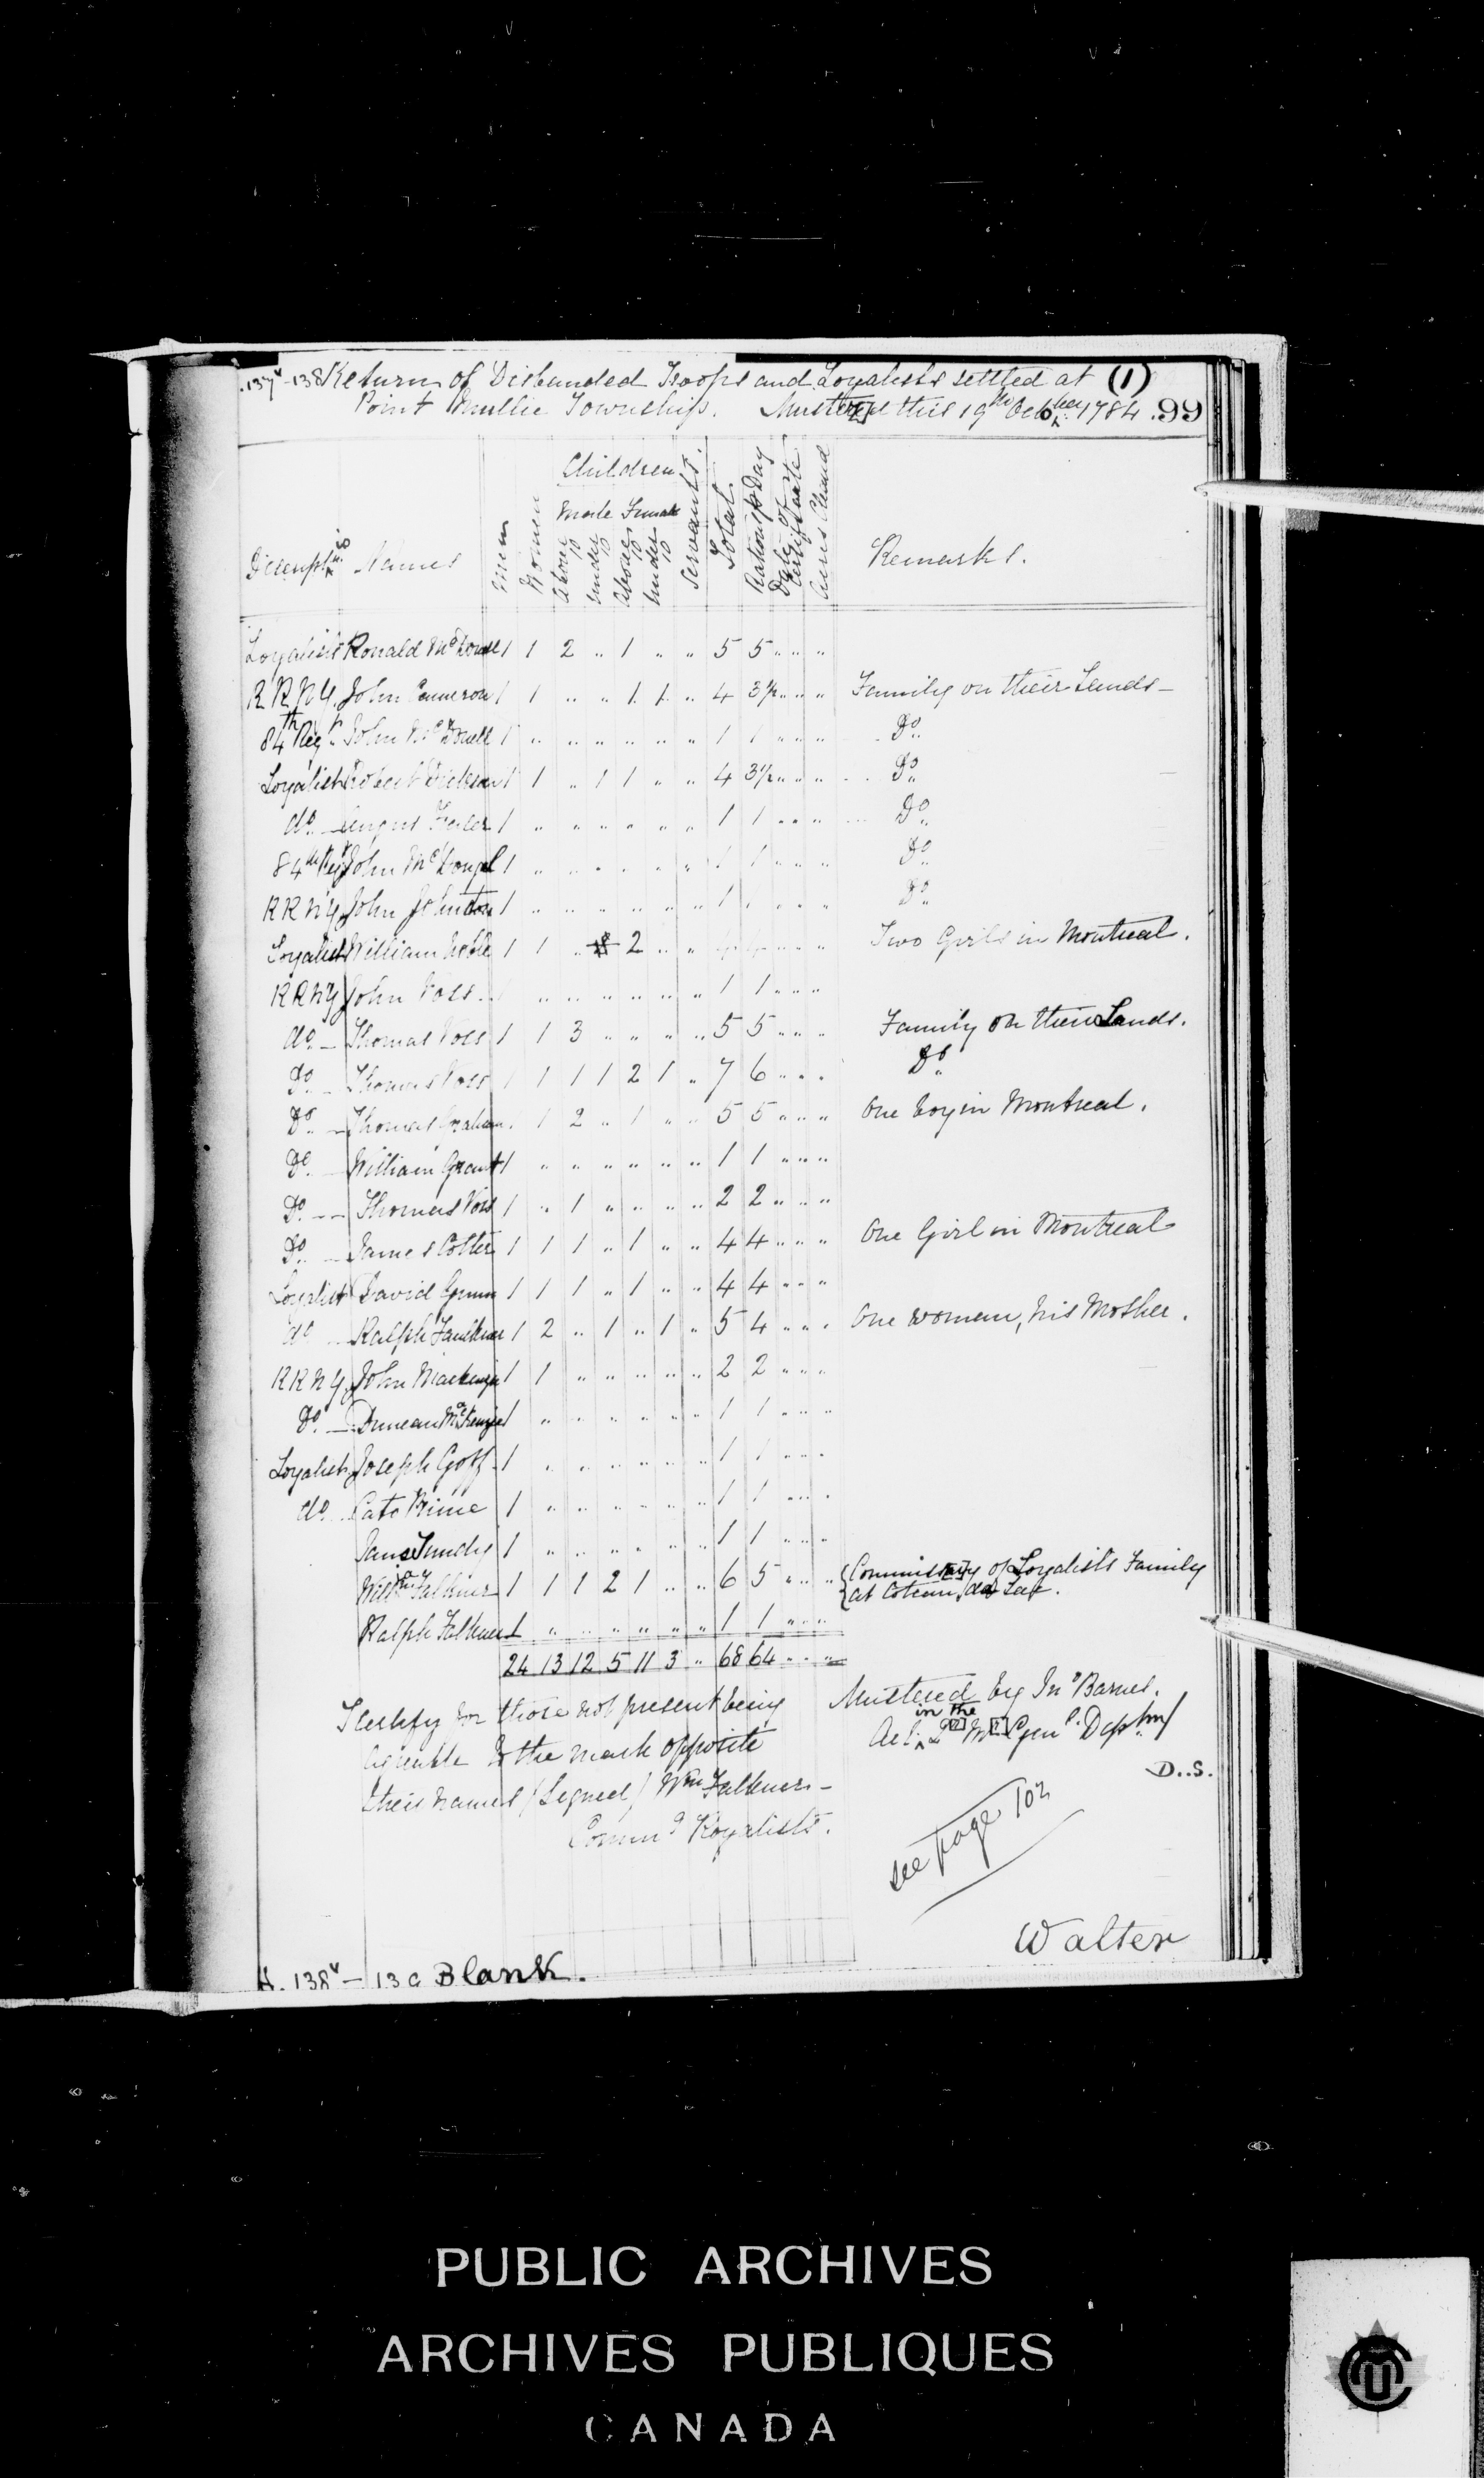 .137v-138 Return of Disbanded Troops and Loyalists settled at (1)
Point Mullie Township. Mustered this 19th Octber 1784 .99
Children
Male Female
Discript.ns Names Men Women above 10 under 10 above 10 under 10 Servants. Total Rations p Day Date of Certificate Acres Claimd Remarks.
Loyalist Ronald McDonell 1 1 2 " 1 " " 5 5 " " "
R R N Y. John Cameron 1 1 " " 1 1 " 4 3½ " " " Family on their Lands -
84th Regt John McDonell 1 " " " " " " 1 1 " " " Do
Loyalist Robert Dickson 1 1 " 1 1 " " 4 3½ " " " Do
do Angus 1 " " " " " " 1 1 " " " Do
84th Regt John McDougel 1 " " " " " " 1 1 " " " Do
R R N Y. John Johnston 1 " " " " " " 1 " " " Do
Loyalist William Noble 1 1 " 2 " " 4 4 " " " Two Girls in Montreal.
R R N Y John Voss " " " " " " 1 1 " " "
do Thomas Voss 1 1 3 " " " " 5 5 " " " Family on their Lands.
Do Thomas Ross 1 1 1 1 2 1 " 7 6 " " " Do
Do Thomas Graham 1 2 " 1 " " 5 5 " " " One boy in Montreal.
Do William Grant 1 " " " " " " 1 1 " " "
Do Thomas Voss 1 " 1 " " " " 2 2 " " "
Do James Cotter 1 1 1 " 1 " " 4 4 " " " One Girl in Montreal
Loyalist David Gunn 1 1 1 " 1 " " 4 4 " " "
do Ralph Faulkner 1 2 " 1 " 1 " 5 4 " " " One woman, his Mother.
R R N Y. John Mackenzie 1 1 " " " " " 2 2 " " "
Do Duncan McKenzie 1 " " " " " " 1 1 " " "
Loyalist Joseph Goff 1 " " " " " " 1 1 " " "
do Cato Prime 1 " " " " " " 1 1 " " "
Jans Tundy 1 " " " " " " 1 1 " " "
Willm Falkner 1 1 1 2 1 " " 6 5 " " " Commissary of Loyalists Family
at Coteau du Lac.
Ralph Falkner 1 " " " " " " 1 1 " " "
24 13 12 5 11 3 " 68 64 " " "
I certify for those not present being
agreeable to the mark opposite
their names (Signed) Wm Falkner -
Comm.g Royalists.
Mustered by Jno Barnes.
in the
Act. Q M Genl. Deptm
D..S.
see page 102
Walter
A. 138v - 139 Blank.
PUBLIC ARCHIVES
ARCHIVES PUBLIQUES
CANADA